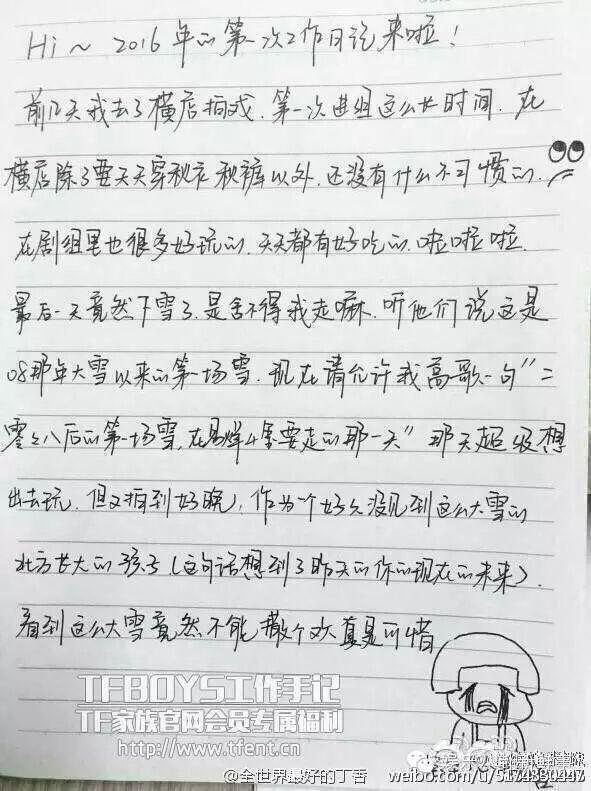 Hi~ 2016年的第一次工作日记来啦!
前几天我去了横店拍戏.第一次进组这么长时间.在
横店除了要天天穿秋衣秋裤以外.还没有什么不习惯的.
在剧组里也很多好玩的.天天都有好吃的.啦啦啦.
最后一天竟然下雪了.是舍不得我走嘛.听他们说这是
08那年大雪以来的第一场雪.现在请允许我高歌一句"二
零零八后的第一场雪,在易烊千玺要走的那一天"那天超级想
出去玩.但又拍到好晚,作为一个好久没见到这么大雪的
北方长大的孩子(这句话想到了昨天的你的现在的未来).
看到这么大雪竟然不能撒个欢真是可惜
TFBOYS工作手记
TF家族官网会员专属福利
http://www.tfent.cn
@全世界最好的丁香
weibo.com/u/5174330447